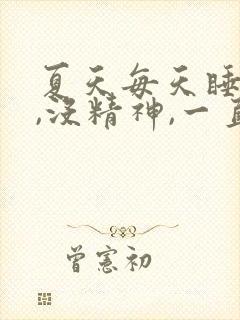 夏天每天睡
,没精神,一直
曾憲初